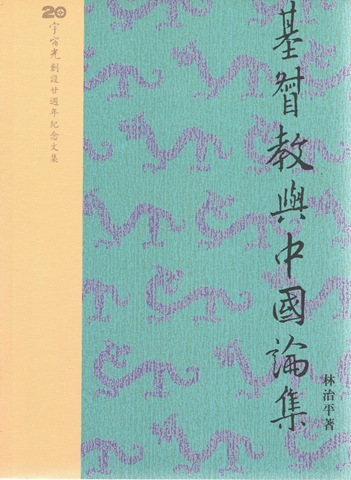 基督教與中國論集
林治平著
20
宇宙光創設廿週年紀念文集